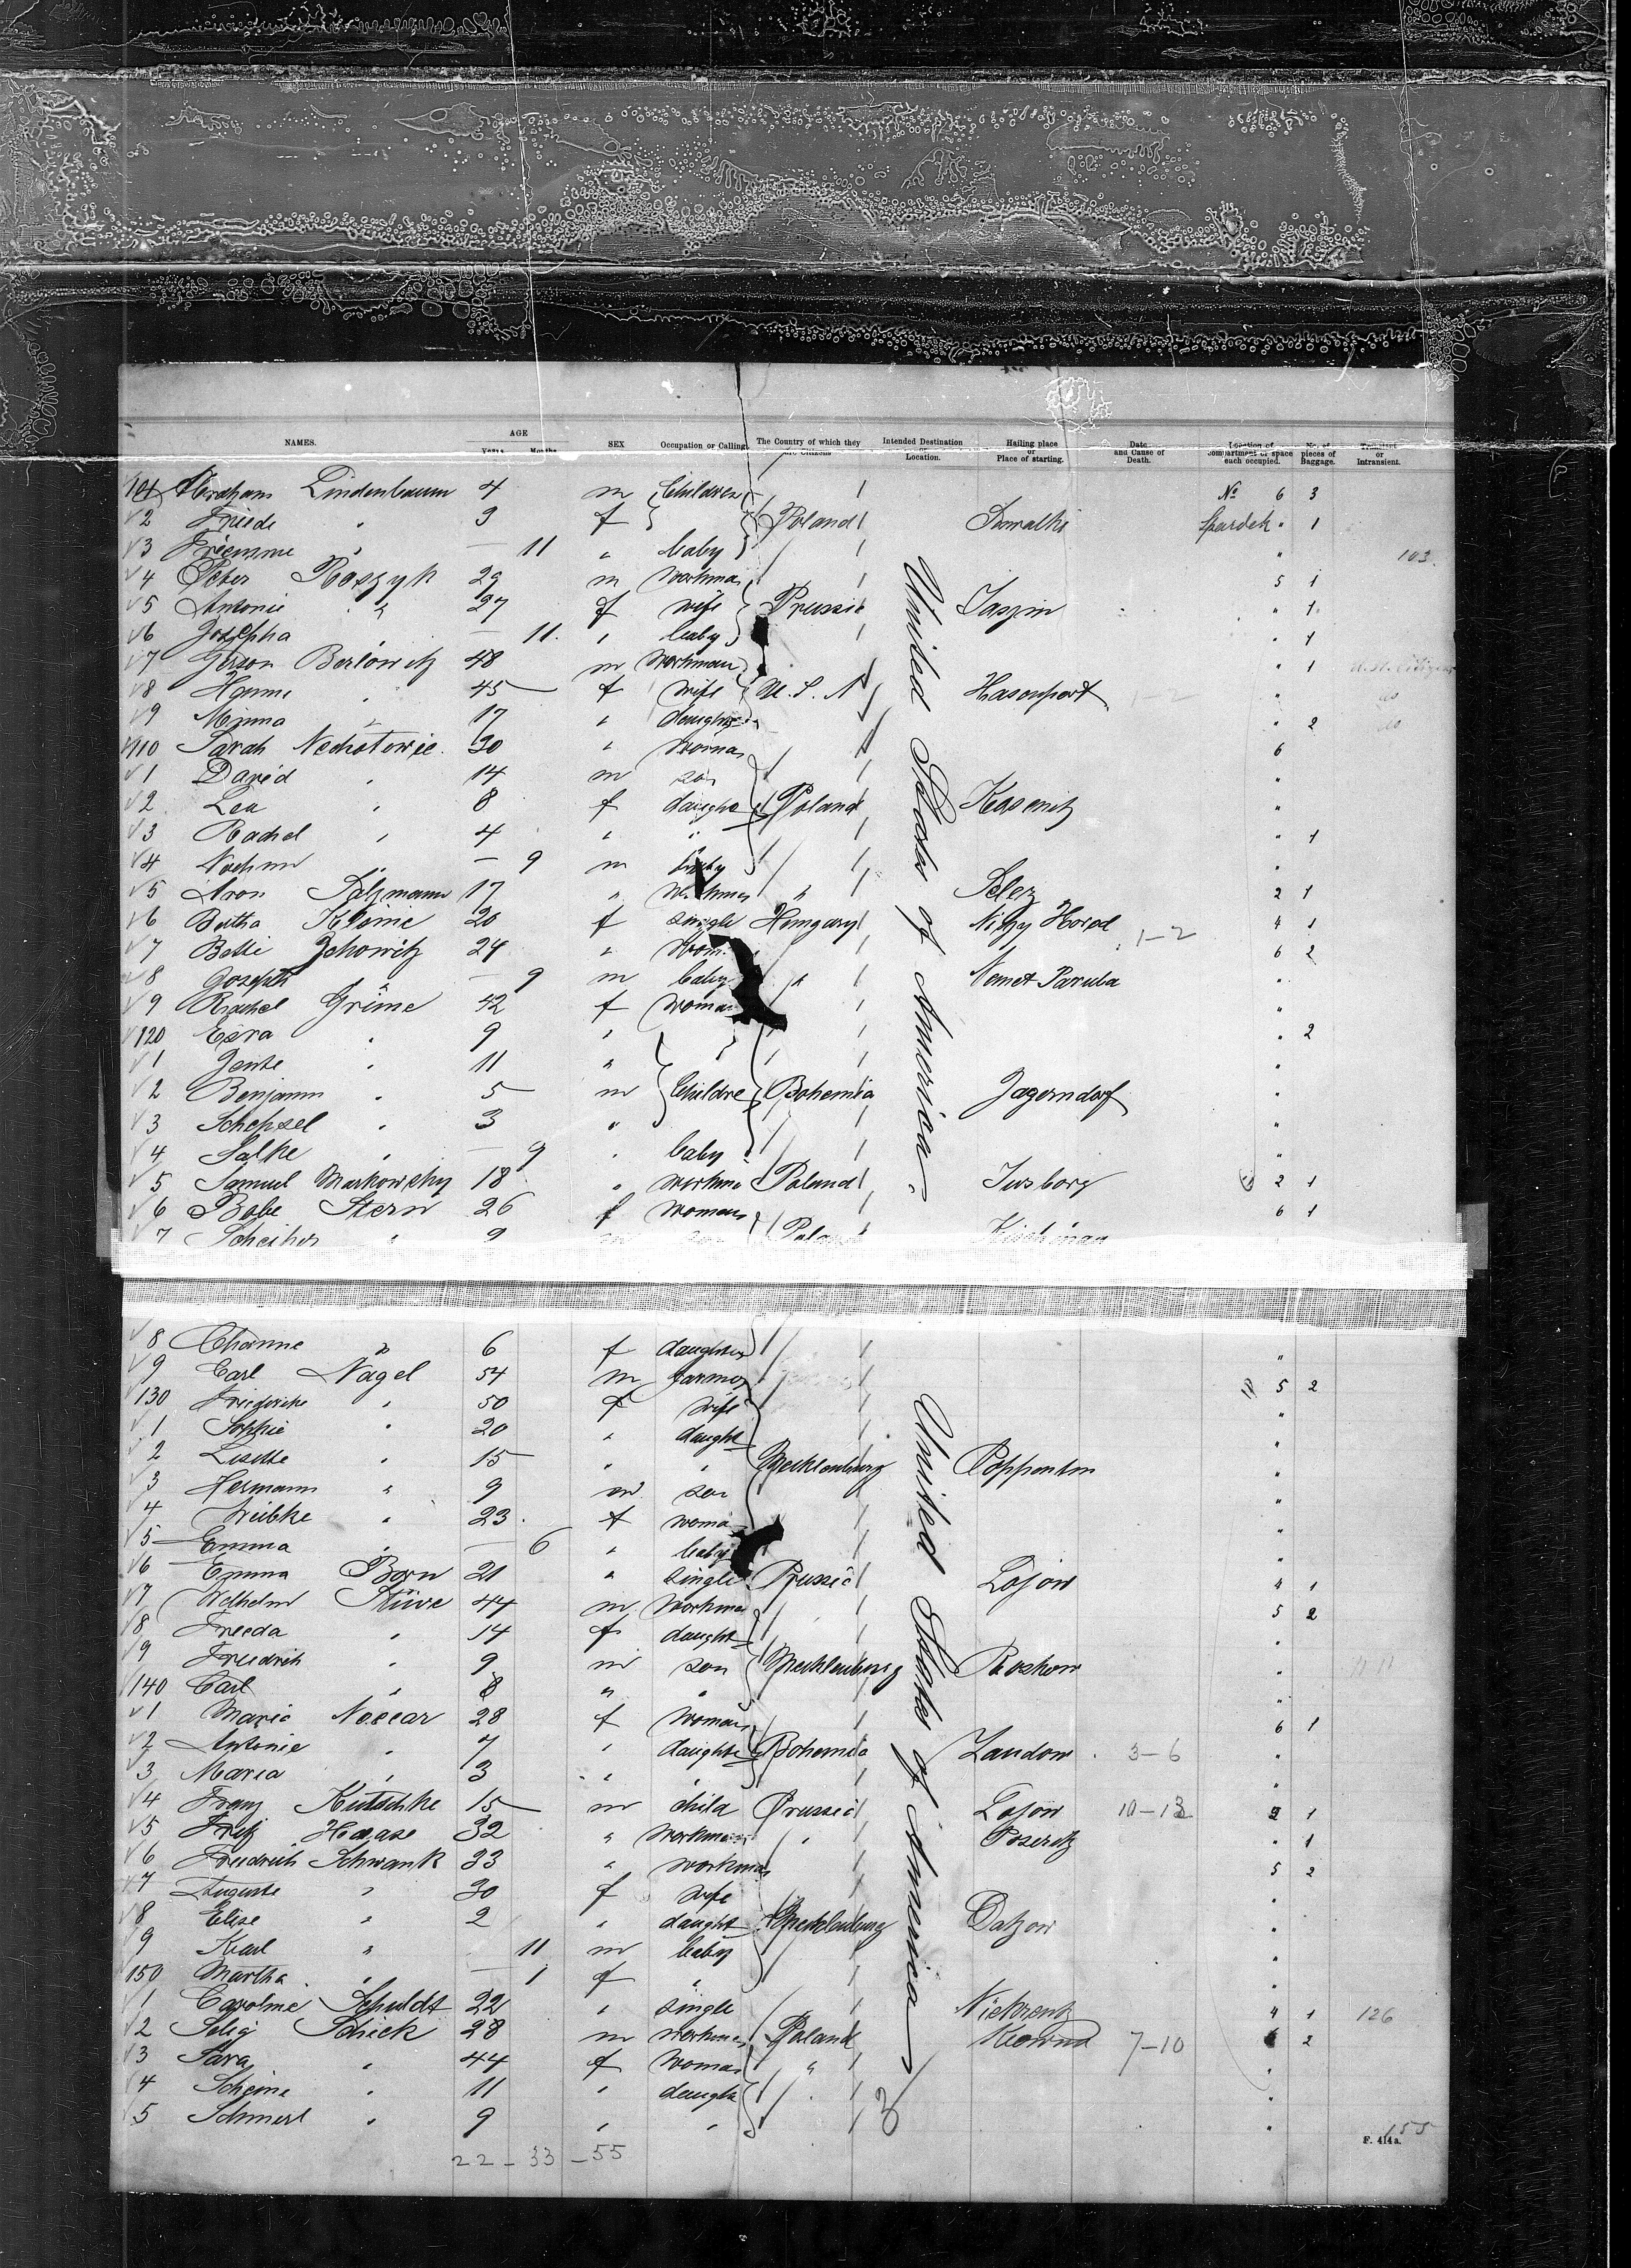 NAMES. AGE Years Months SEX Occupation or Calling. The Country of which they are Citizens Intended Destination or Location. Hailing place or Place of starting. Date and Cause of Death. Location of compartment or space each occupied. No. of pieces of Baggage. Transient or Intransient.
101 Abraham Lindenbaum 4 m Children No 6 3
2 Friede " 3 f Poland Suwalki Spardek " 1
3 " — 11 " baby " 103.
4 Peter Roszyk 29 m workman 5 1
5 Antonie " 27 f wife Prussia Jaszin " 1
6 Josepha — 11. " baby " 1
7 Gerson Berlowitz 48 m workman " 1 U.S. Citizen
8 Hanne " 45 f wife U.S.A. Hasenport 1-2 " do
9 Minna " 17 " daughter " 2 do
110 Sarah 30 " woman 6
1 David " 14 m son "
2 Lea " 8 f daughter Poland "
3 Rachel " 4 " " " 1
4 Nochim " — 9 m baby "
5 Aron Salzmann 17 " workman " 2 1
6 Bertha Klonie 20 f single Hungary 4 1
7 Betti Zehowitz 24 " woman 1-2 6 2
8 Joseph " — 9 m baby " "
9 Rachel Grime 42 f woman "
120 Esra " 9 " " 2
1 Jente " 11 " "
2 Benjamin " 5 m Children Bohemia Jagerndorf "
3 Schepsel " 3 " "
4 Salke " — 9 " baby "
5 Samuel Markowsky 18 " workman Poland 2 1
6 Babe Stern 26 f woman 6 1
7 " 9 m son Poland
United States of America.
8 Channe " 6 f daughter "
9 Carl Nagel 54 m farmer 5 2
130 Friederike " 50 f wife "
1 Sophie " 20 " daughter "
2 Lisette " 15 " " Mecklenburg Poppentin "
3 Hermann " 9 m son "
4 Wiebke " 23 f woman "
5 Emma " — 6 " baby "
6 Emma Born 21 " single Prussia Losow 4 1
7 Wilhelm Stüwe 44 m workman 5 2
8 Frieda " 14 f daughter "
9 Friedrich " 9 m son Mecklenburg Roskow "
140 Carl " 8 " " "
1 Maria 28 f woman 6 1
2 Antonie " 7 " daughter Bohemia Landow 3-6 "
3 Maria " 3 " " "
4 Franz Kutschke 15 m child Prussia Losow 10-13 2 1
5 Fritz Haase 32 " workman " Poseritz " 1
6 Friedrich Schwank 33 " workman 5 2
7 Auguste " 30 f wife "
8 Elise " 2 " daughter Mecklenburg Dalzow "
9 Karl " 11 m baby "
150 Martha " — 1 f " "
1 Caroline Schuldt 22 " single 4 1 126
2 Selig Schick 28 m workman Poland Kowno 7-10 6 2
3 Sara " 44 f woman " "
4 Scheine " 11 " daughter "
5 Schmerl " 9 " " "
United States of America
22 - 33 - 55
155
F. 414a.